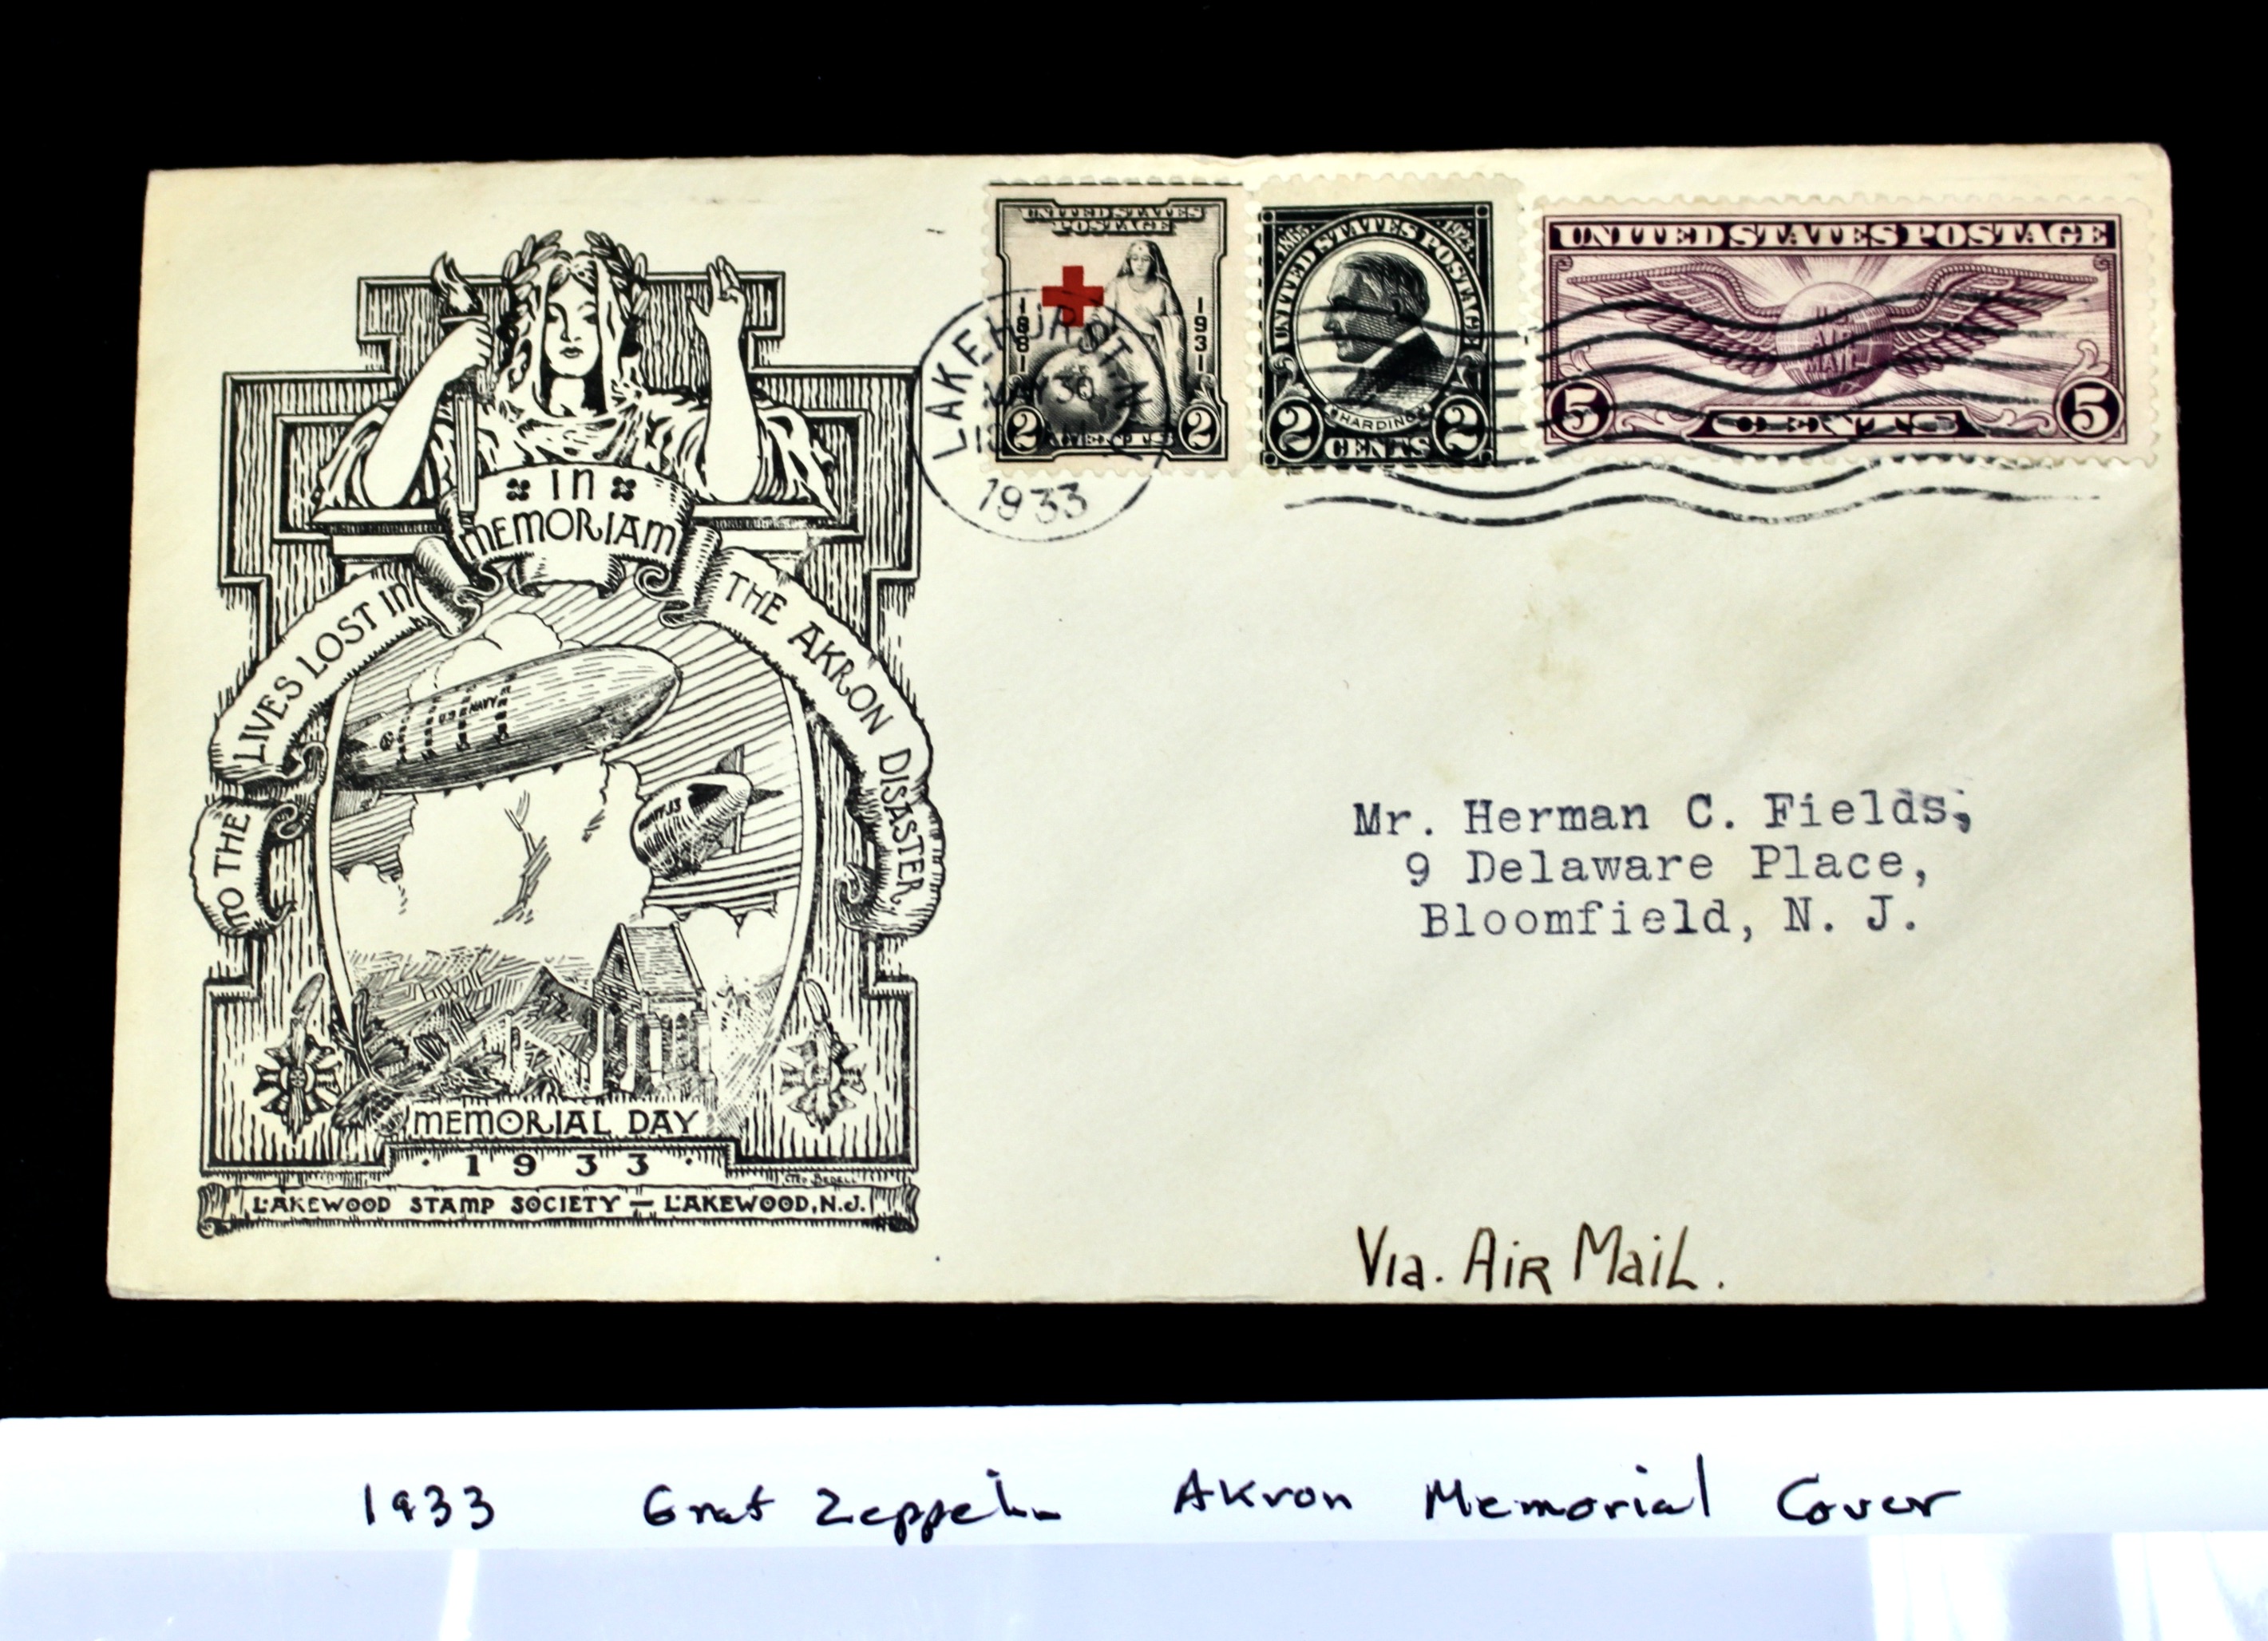 IN
MEMORIAM
TO THE LIVES LOST IN THE AKRON DISASTER
U.S. NAVY
J3
MEMORIAL DAY
· 1933 ·
LAKEWOOD STAMP SOCIETY — LAKEWOOD, N.J.
UNITED STATES
POSTAGE
1881 1931
2 2
LAKEHURST, N
MAY 30
1933
1865 1923
UNITED STATES POSTAGE
HARDING
2 CENTS 2
UNITED STATES POSTAGE
U.S.
AIR
MAIL
5 CENTS 5
Mr. Herman C. Fields,
9 Delaware Place,
Bloomfield, N. J.
Via. Air Mail.
1933 Graf Zeppelin Akron Memorial Cover